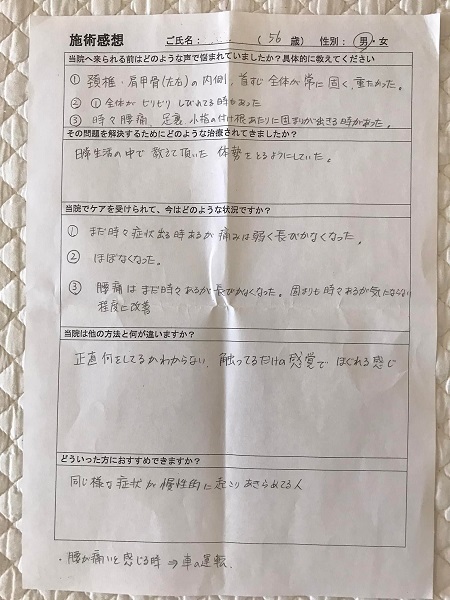 施術感想 ご氏名: (56 歳) 性別: 男・女
当院へ来られる前はどのような声で悩まれていましたか?具体的に教えてください
① 頚椎・肩甲骨(左右)の内側、首すじ全体が常に固く、重たかった。
② ①全体がビリビリしびれてる時もあった
③ 時々腰痛、足裏、小指の付け根あたりに固まりが出きる時があった。
その問題を解決するためにどのような治療されてきましたか?
日常生活の中で教えて頂いた体勢をとるようにしていた。
当院でケアを受けられて、今はどのような状況ですか?
① まだ時々症状出る時あるが痛みは弱く長びかなくなった。
② ほぼなくなった。
③ 腰痛はまだ時々あるが長びかなくなった。固まりも時々あるが気にならない
程度に改善
当院は他の方法と何が違いますか?
正直何をしてるかわからない、触ってるだけの感覚でほぐれる感じ
どういった方におすすめできますか?
同じ様な症状が慢性的に起こりあきらめてる人
・腰が痛いと感じる時 ⇒ 車の運転.